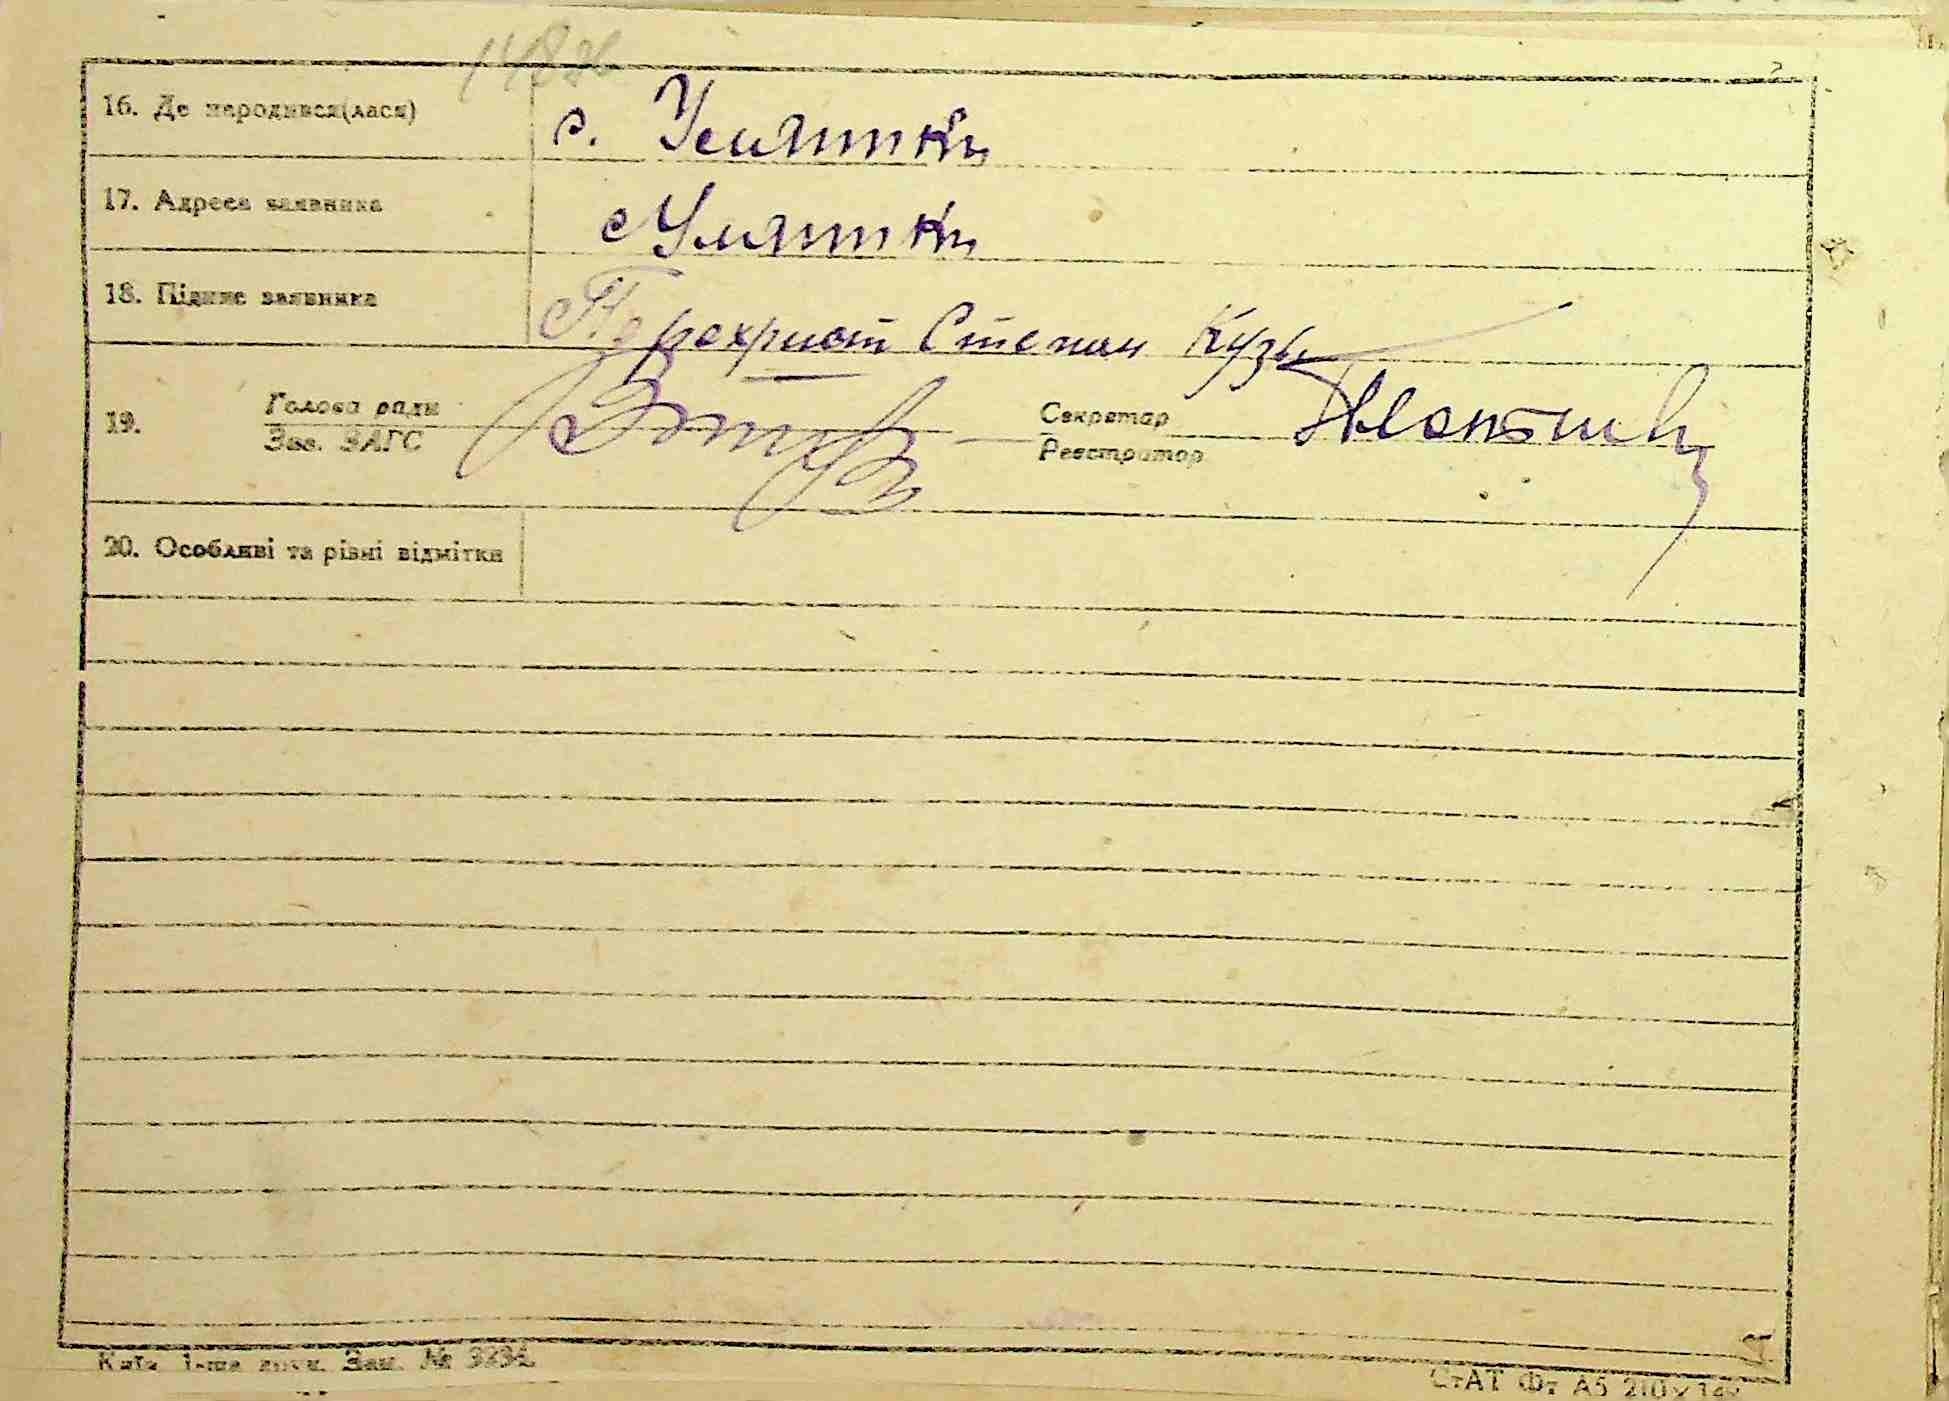 148 зв
16. Де народився(лася) с. Умятки
17. Адреса заявника с Умятки
18. Підпис заявника Перехрист Степан Кузь
Голова ради Секретар
19.
Зав. ЗАГС Реєстратор
20. Особливі та різні відмітки
Київ. 1-ша друк. Зам. № 3234.
СтАТ Фт А5 210 х 148